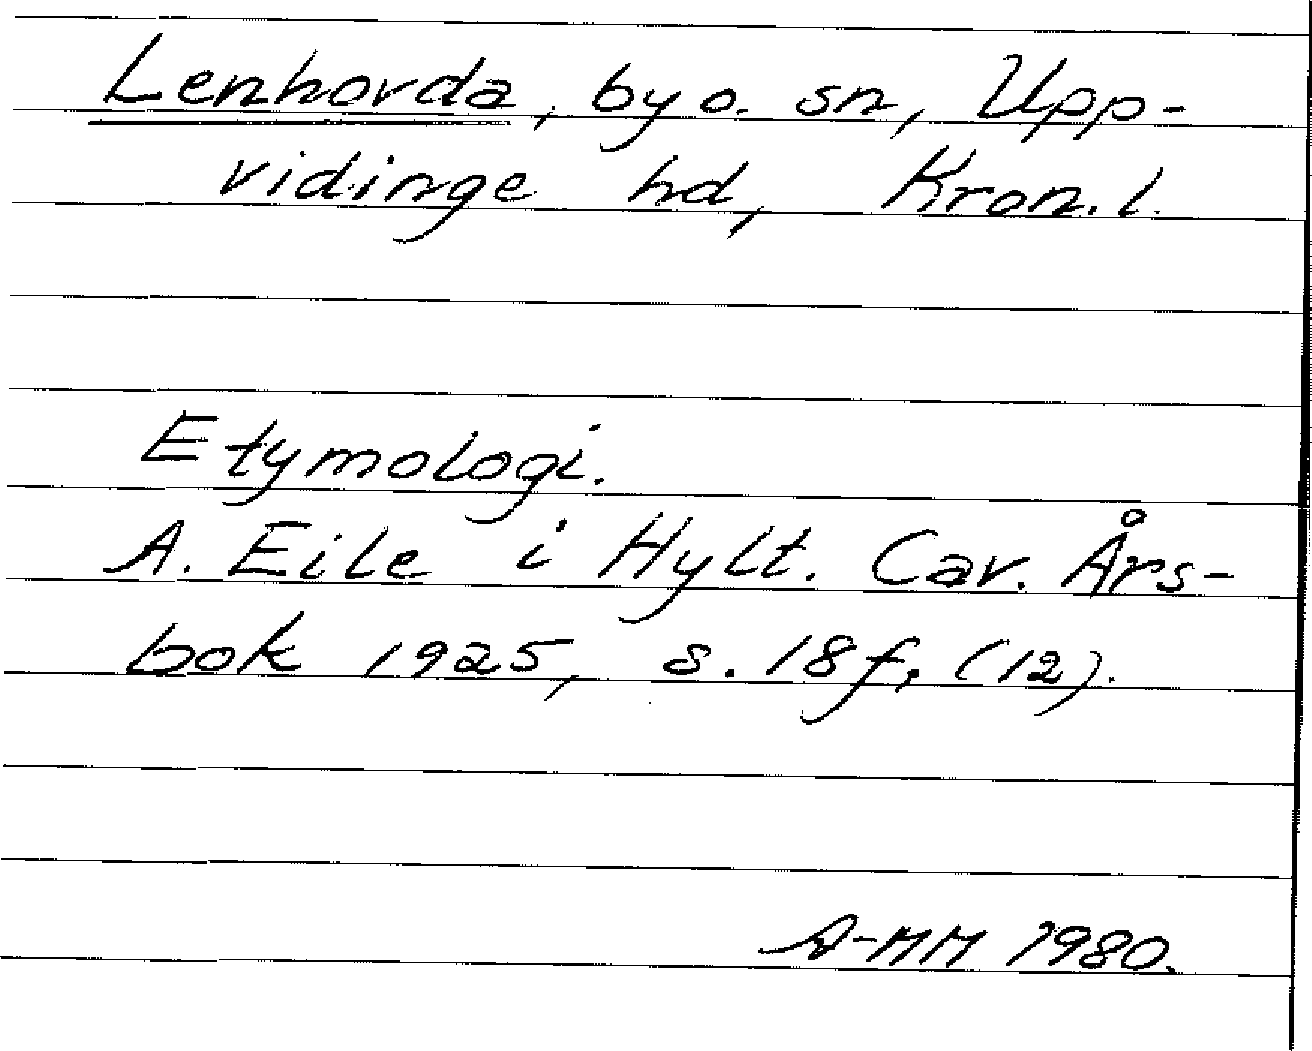 Lenhovda, by o. sn, Upp-
vidinge hd, Kron. l.
Etymologi.
A. Eile i Hylt. Cav. Års-
bok 1925, s. 18f, (12).
A-MM 1980.